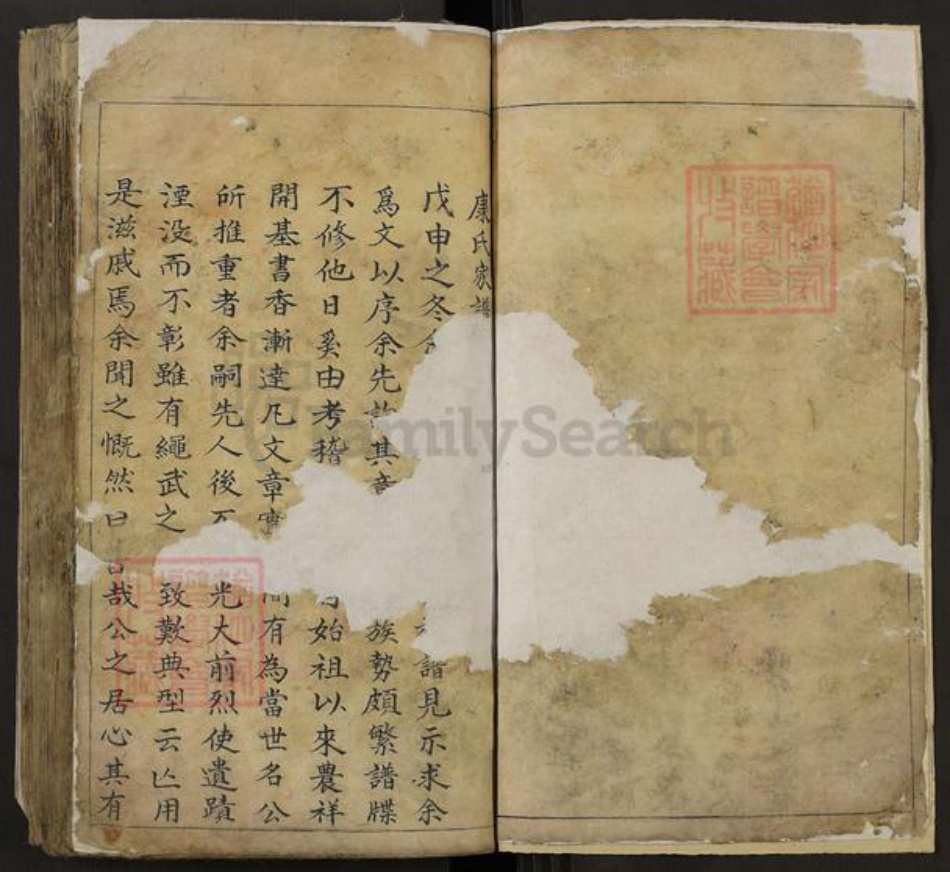 康氏家譜
戊申之冬 譜見示求余
為文以序余先 其 族勢頗繁譜牒
不修他日奚由考稽 始祖以來農祥
開基書香漸達凡文章 有為當世名公
所推重者余嗣先人後不 光大前烈使遺蹟
湮没而不彰雖有繩武之 致歎典型云亾用
是滋戚焉余聞之慨然曰 哉公之居心其有
FamilySearch